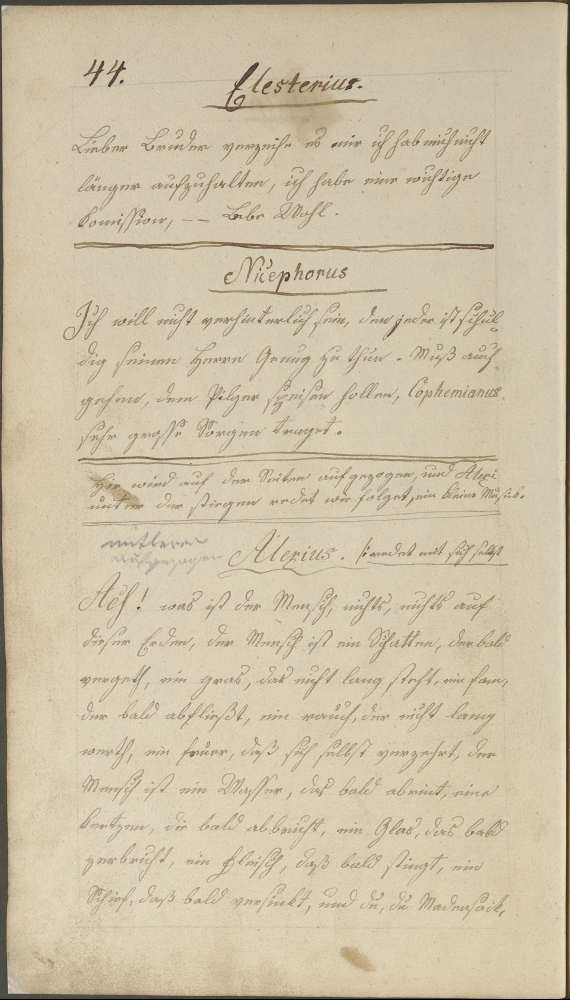 44.
Elesterius.
Lieber Bruder verzeihe es mir ich hab mich nicht
länger aufzuhalten, ich habe eine wichtige
Comission, -- Lebe Wohl.
Nicephorus
Ich will nicht verhinterlich sein, den jeder ist schul-
dig seinem Herrn Genug zu thun. Muß auch
gehen, dem Pilger speisen hollen, Cophemianus.
sehr grosse Sorgen traget.
Hier wird auf der Seiten aufgezogen, und Alexi
unter der stiegen redet wie folget, ein kleine Musick.
mittlern
aufgezogen
Alexius. redet mit sich selbst
Ach! was ist der Mensch, nichts, nichts auf
dieser Erden, der Mensch ist ein Schatten, der bald
vergeth, ein gras, das nicht lang steht, ein
der bald abfließt, ein rauch, der nicht lang
werth, ein feuer, deß sich selbst verzehrt, der
Mensch ist ein Wasser, das bald abrint, eine
kertzen, die bald abbricht, ein Glas, das bald
zerbricht, ein Fleisch, daß bald stingt, ein
Schief, daß bald versinckt, und du, du Madensack,